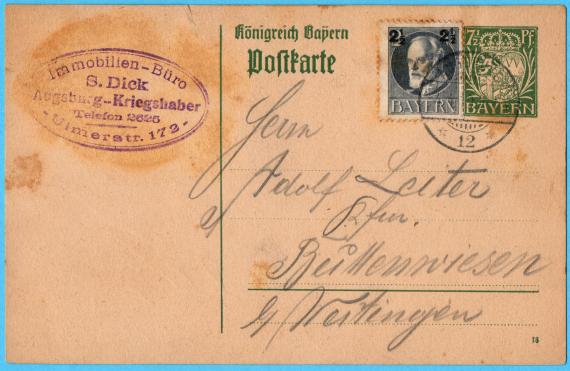 Immobilien-Büro
S. Dick
Augsburg-Kriegshaber
Telefon 2625
- Ulmerstr. 172 -
Königreich Bayern
Postkarte
2½ 2½
BAYERN
7½ Pf
BAYERN
12
Herrn
Adolf Leiter
Kfm.
Buttenwiesen
b/ Wertingen
18